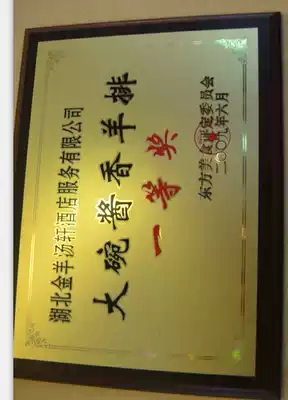 湖北金羊汤轩酒店服务有限公司
大碗酱香羊排
一等奖
东方美食评定委员会
二〇〇九年六月